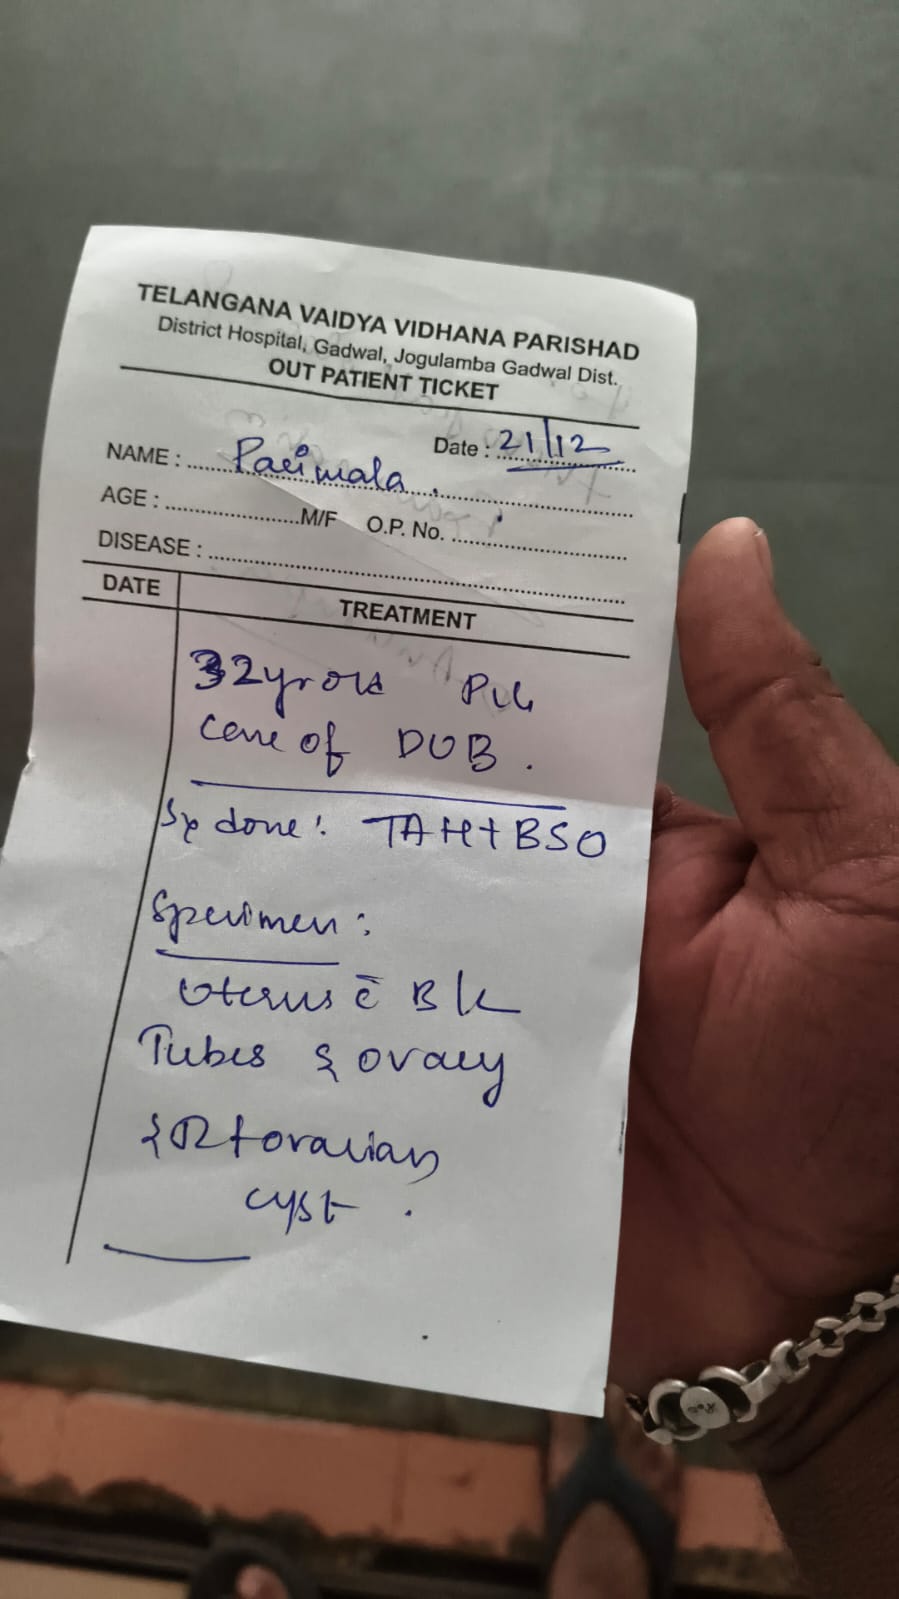 TELANGANA VAIDYA VIDHANA PARISHAD
District Hospital, Gadwal, Jogulamba Gadwal Dist.
OUT PATIENT TICKET
Date : 21/12
NAME : Parimala
AGE : M/F O.P. No.
DISEASE :
DATE TREATMENT
32yr old
case of DUB.
Sx done: TAH+BSO
Specimen:
Uterus c̄ B/L
Tubes & ovary
& Rt ovarian
cyst.